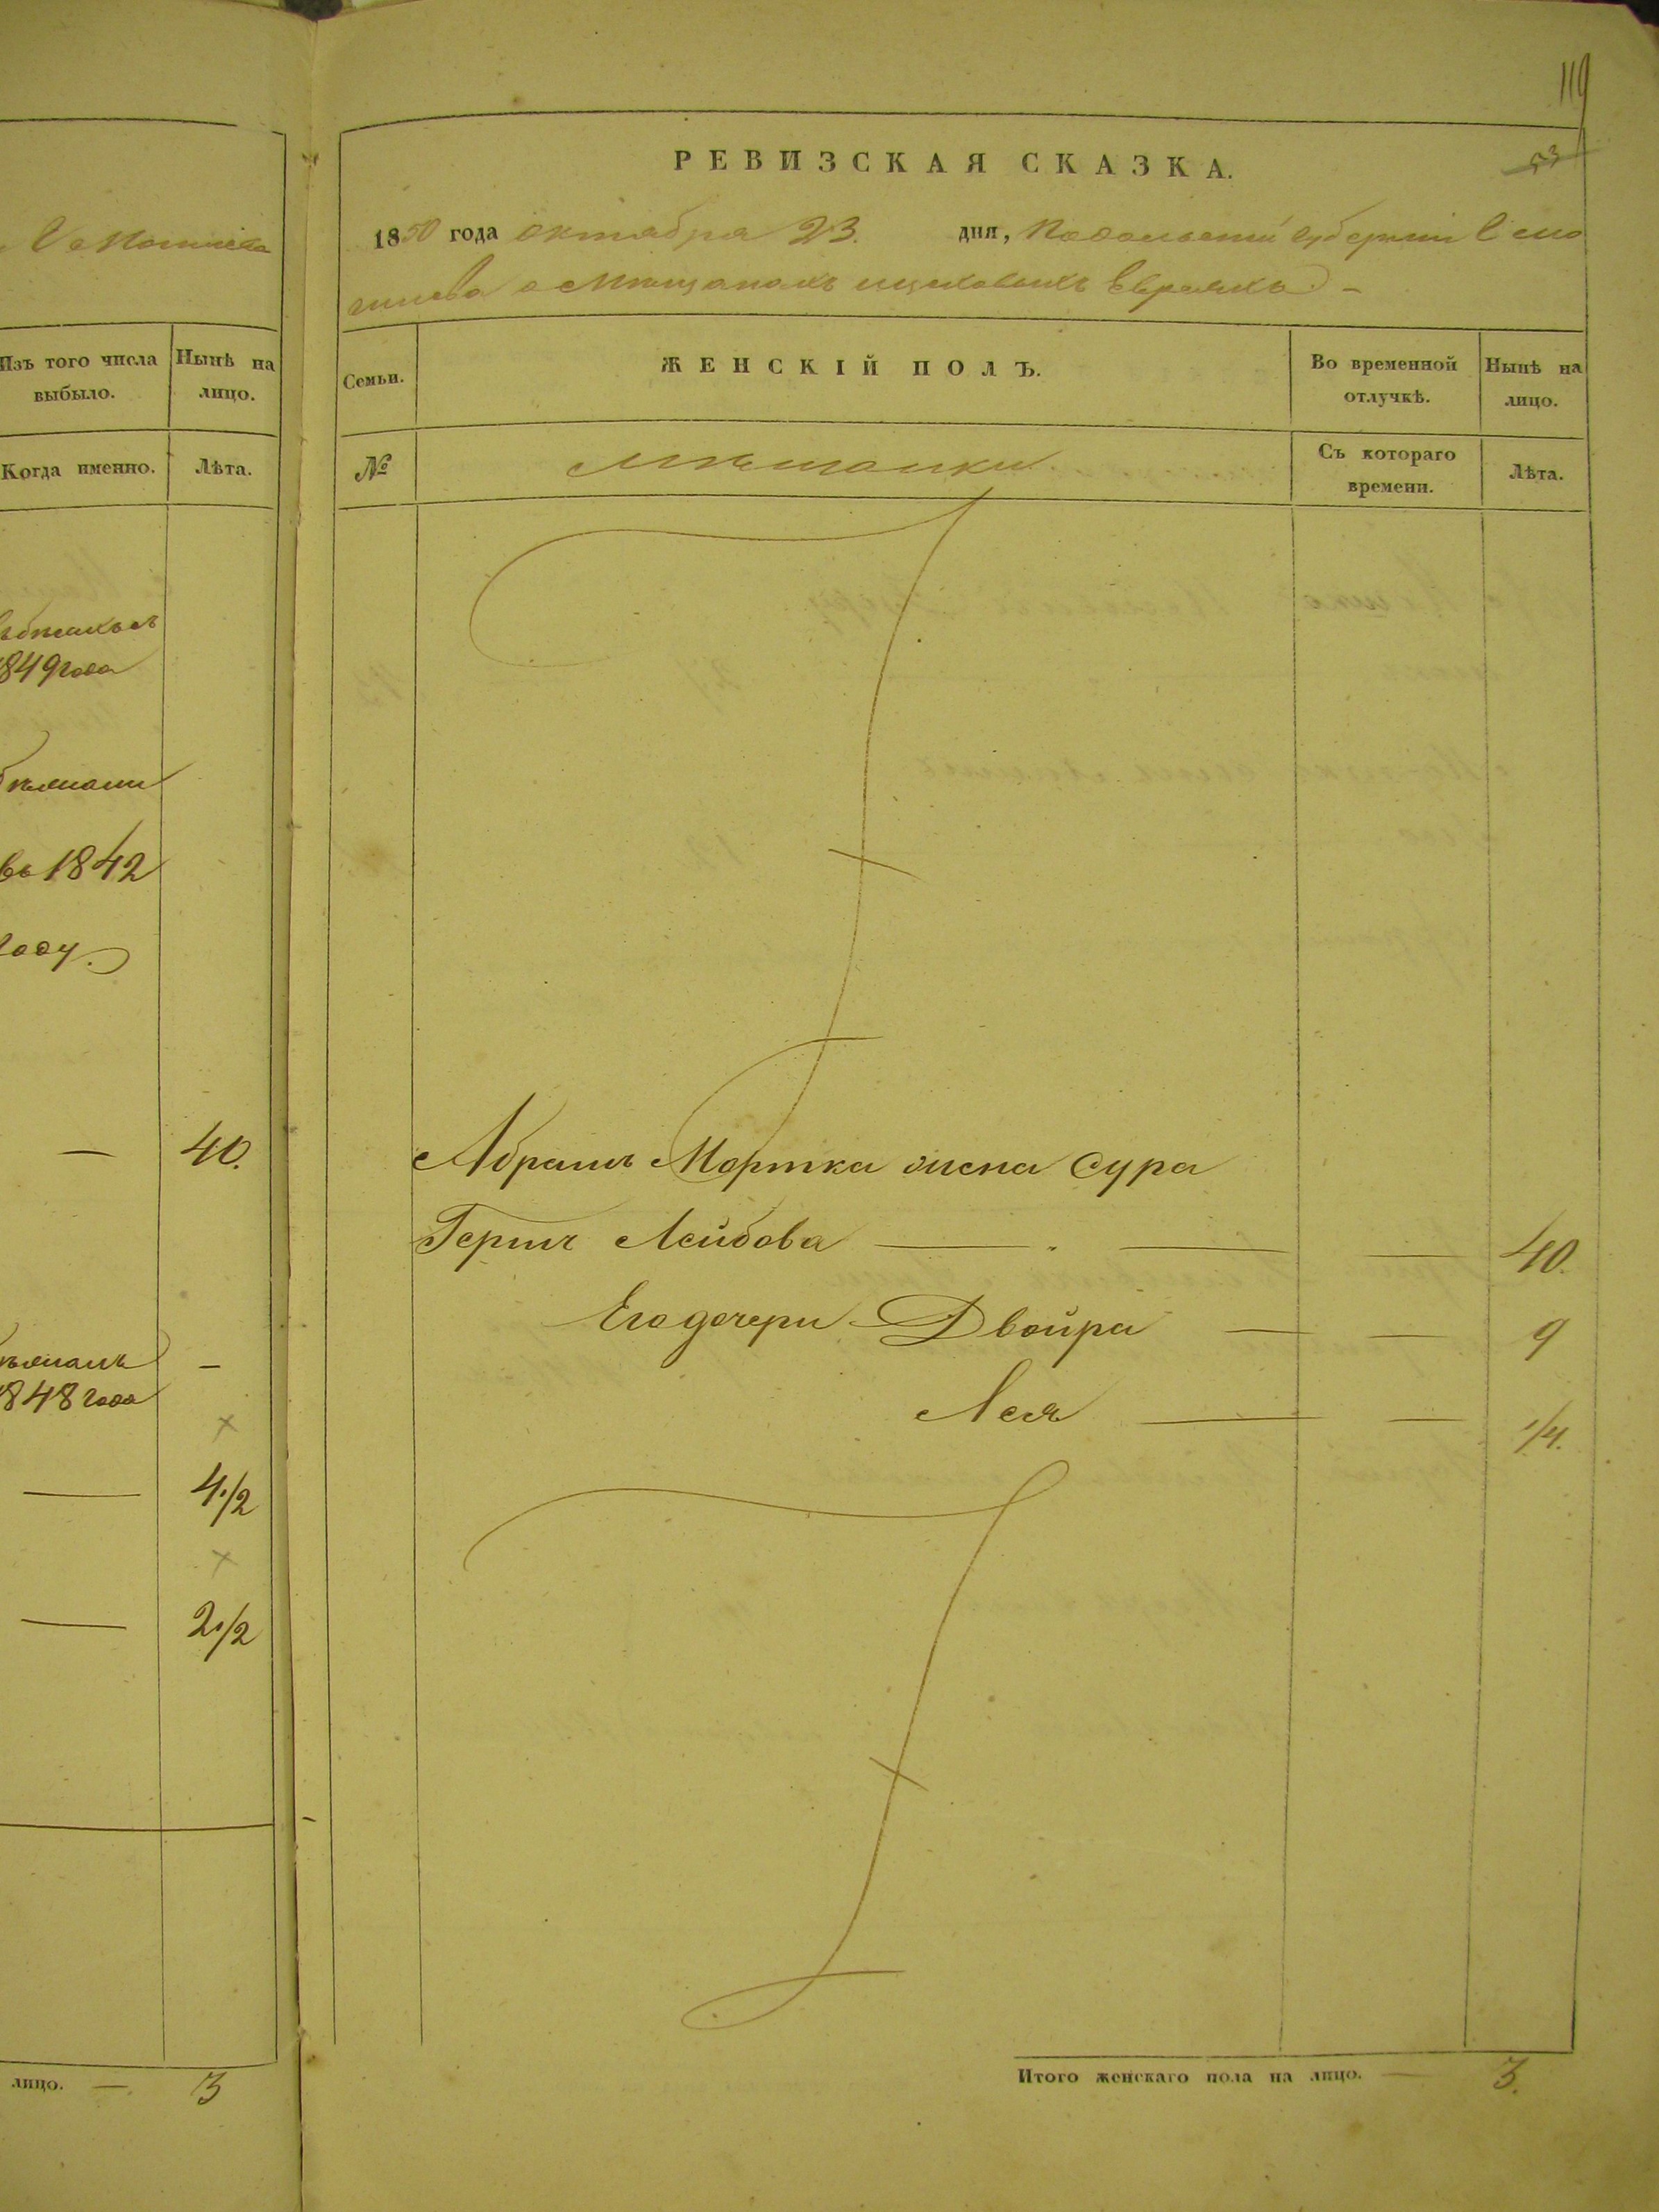 119
53
РЕВИЗСКАЯ СКАЗКА.
1850 года октября 23. дня, Подольской губернии
о мещанахъ евреяхъ
Изъ того числа выбыло.
Нынѣ на лицо.
Когда именно.
Лѣта.
1849 года
въ 1842
году.
—
40.
—
1848 года
×
—
4 1/2
×
—
2 1/2
лицо. — 3
Семьи.
ЖЕНСКІЙ ПОЛЪ.
Во временной отлучкѣ.
Нынѣ на лицо.
№
мещанки
Съ котораго времени.
Лѣта.
Абрамъ Мортка жена Сура
Герш Лейбова — — — 40.
Его дочери Двойра — — 9
Лея — — 1/4.
Итого женскаго пола на лицо. — 3.